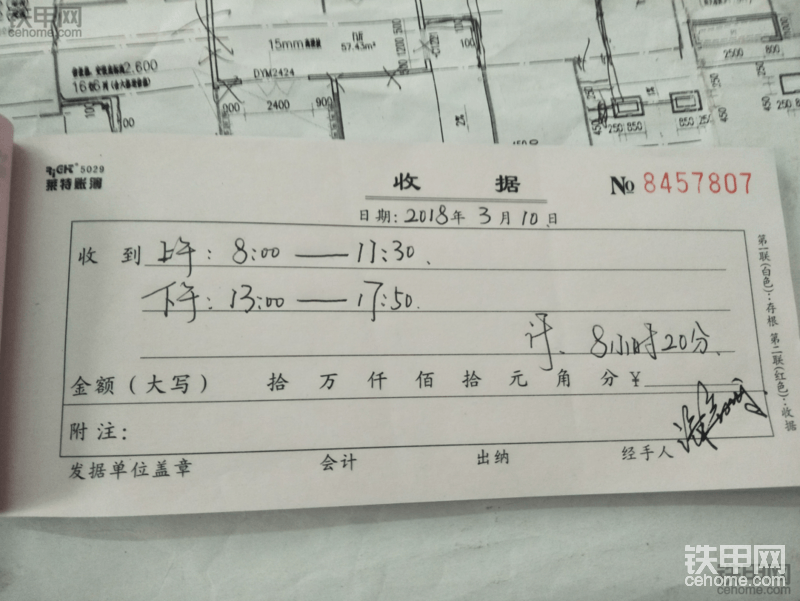 铁甲网
cehome.com
15mm
57.43m²
2.600
DYM2424
2400
900
2500
800
250
850
850
250
RiGHT 5029
莱特账簿
收 据
№ 8457807
日期: 2018年 3月 10日
收 到 上午: 8:00 — 11:30.
下午: 13:00 — 17:50.
计. 8小时20分.
金额(大写) 拾 万 仟 佰 拾 元 角 分 ¥
附注:
发据单位盖章 会计 出纳 经手人
第一联(白色):存根 第二联(红色):收据
铁甲网
cehome.com